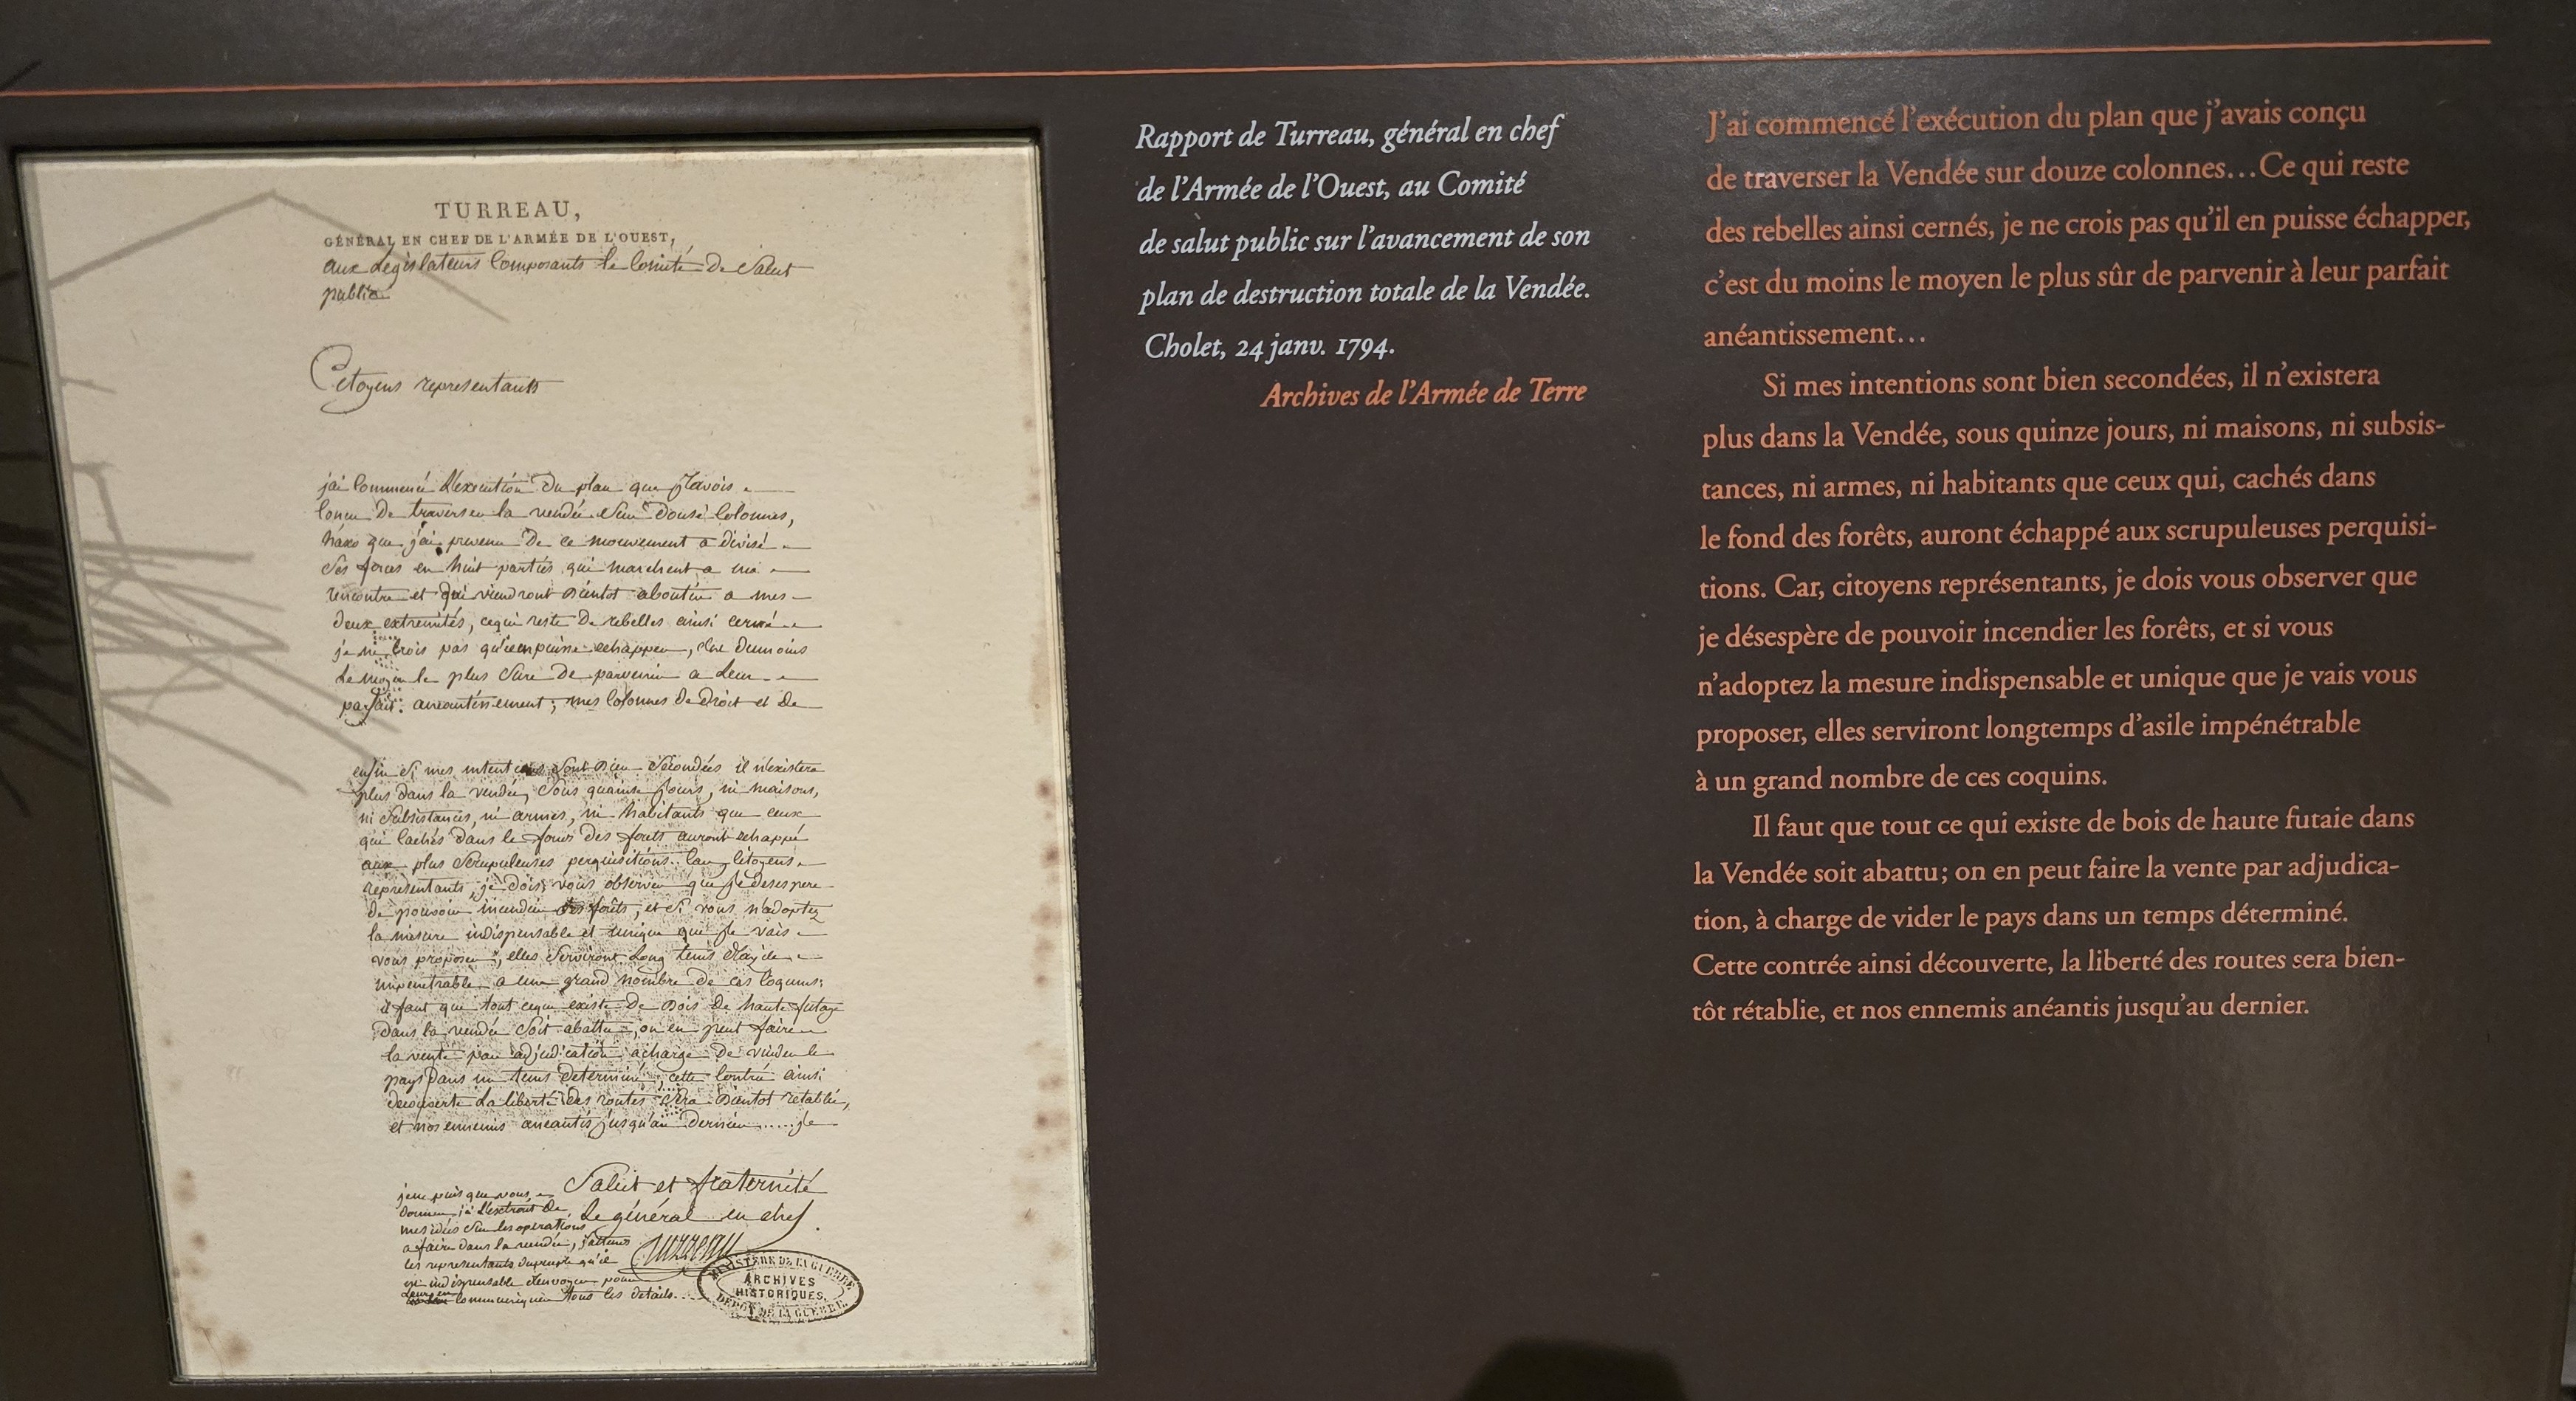 TURREAU,
GÉNÉRAL EN CHEF DE L'ARMÉE DE L'OUEST,
aux Législateurs Composants le Comité De Salut
public
Citoyens representants
jai Commencé L'execution Du plan que J'avois
Concu De traverser la vendée Sur Douse Colonnes,
haxo que j'ai prevenu De ce mouvement a divisé
Ses forces en huit parties qui marchent a ma
rencontre et qui viendront Bientot aboutir a mes
deux extremités, cequi reste De rebelles ainsi cerné
je ne Crois pas qu'ilenpuisse echapper, c'est Dumoins
Le moyen le plus Sure De parvenir a Leur
parfait aneantissement; mes Colonnes De Droit et De
enfin Si mes intentions Sont Bien Secondées il n'existera
plus dans la vendée, Sous quainse Jours, ni maisons,
ni Subsistances, ni armes, ni habitants que ceux
qui Cachés Dans le fond Des forets auront echappé
aux plus Scrupuleuses perquisitions. Car Citoyens
representants, je dois vous observer que Je Desespere
De pouvoir incendier les forêts, et Si vous n'adoptez
la mesure indispensable et unique que Je vais
vous proposer, elles Serviront Long tems D'azile
impenetrable a un grand nombre De ces Coquins;
il faut que tout cequi existe De Bois De haute futaye
Dans la vendée Soit abattu, on en peut faire
la vente par adjudication acharge De vuider le
pays Dans un tems Determiné, cette Contrée ainsi
decouverte La liberté Des routes Sera Bientot retablie,
et nos ennemis aneantis jusqu'au Dernier.....je
Salut et fraternité
Le général en chef
Turreau
jene puis que vous
donner ici L'extrait De
mes idées Sur les operations
a faire dans la vendée, J'attens
les representants dupeuple qu'il
est indispensable d'envoyer pour
Leur en communiquer tous les details...
MINISTÈRE DE LA GUERRE
ARCHIVES
HISTORIQUES
DÉPÔT DE LA GUERRE
Rapport de Turreau, général en chef
de l'Armée de l'Ouest, au Comité
de salut public sur l'avancement de son
plan de destruction totale de la Vendée.
Cholet, 24 janv. 1794.
Archives de l'Armée de Terre
J'ai commencé l'exécution du plan que j'avais conçu
de traverser la Vendée sur douze colonnes...Ce qui reste
des rebelles ainsi cernés, je ne crois pas qu'il en puisse échapper,
c'est du moins le moyen le plus sûr de parvenir à leur parfait
anéantissement...
Si mes intentions sont bien secondées, il n'existera
plus dans la Vendée, sous quinze jours, ni maisons, ni subsis-
tances, ni armes, ni habitants que ceux qui, cachés dans
le fond des forêts, auront échappé aux scrupuleuses perquisi-
tions. Car, citoyens représentants, je dois vous observer que
je désespère de pouvoir incendier les forêts, et si vous
n'adoptez la mesure indispensable et unique que je vais vous
proposer, elles serviront longtemps d'asile impénétrable
à un grand nombre de ces coquins.
Il faut que tout ce qui existe de bois de haute futaie dans
la Vendée soit abattu; on en peut faire la vente par adjudica-
tion, à charge de vider le pays dans un temps déterminé.
Cette contrée ainsi découverte, la liberté des routes sera bien-
tôt rétablie, et nos ennemis anéantis jusqu'au dernier.